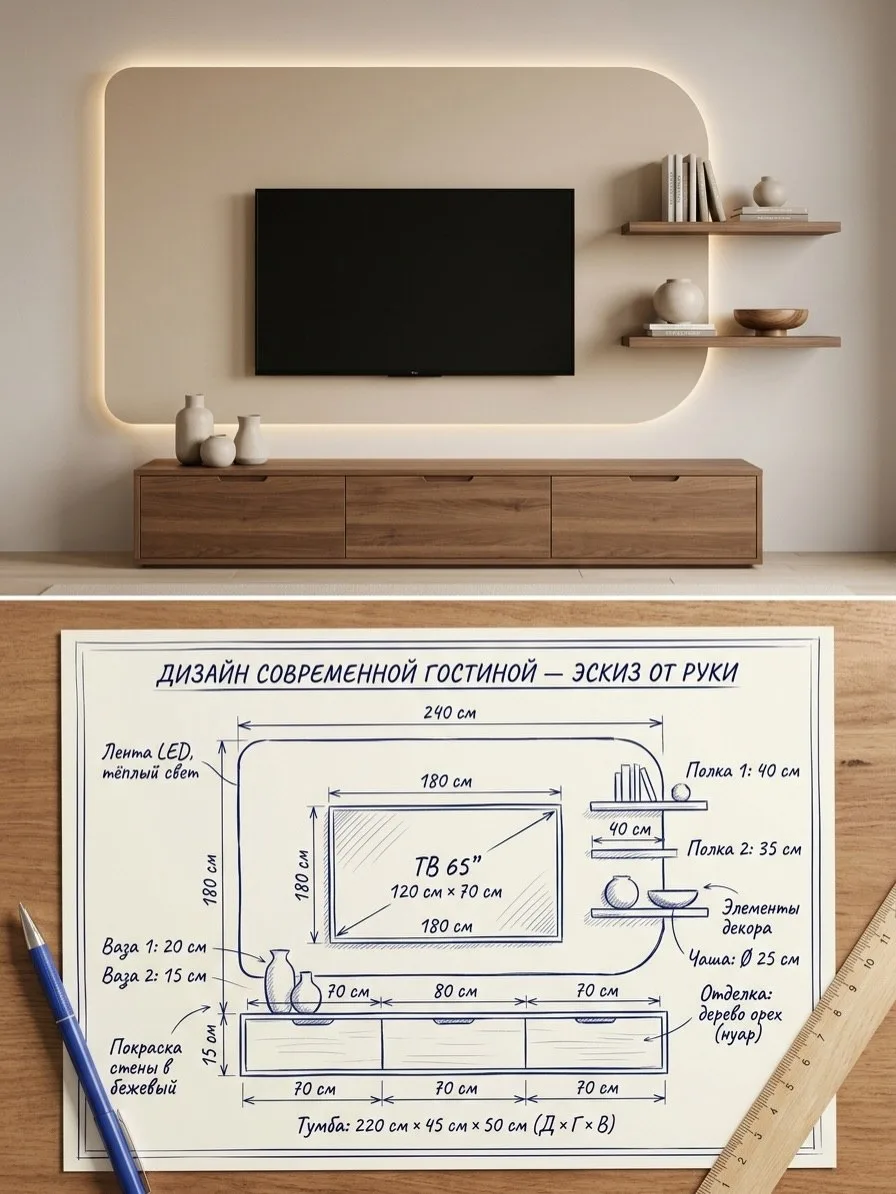 ДИЗАЙН СОВРЕМЕННОЙ ГОСТИНОЙ — ЭСКИЗ ОТ РУКИ
240 см
Лента LED,
тёплый свет
180 см
Полка 1: 40 см
40 см
180 см
180 см
ТВ 65”
120 см × 70 см
180 см
Полка 2: 35 см
Элементы
декора
Ваза 1: 20 см
Ваза 2: 15 см
Чаша: Ø 25 см
70 см
80 см
70 см
Отделка:
дерево орех
(нуар)
Покраска
стены в
бежевый
15 см
70 см
70 см
70 см
Тумба: 220 см × 45 см × 50 см (Д × Г × В)
1
2
3
4
5
6
7
8
9
10
11